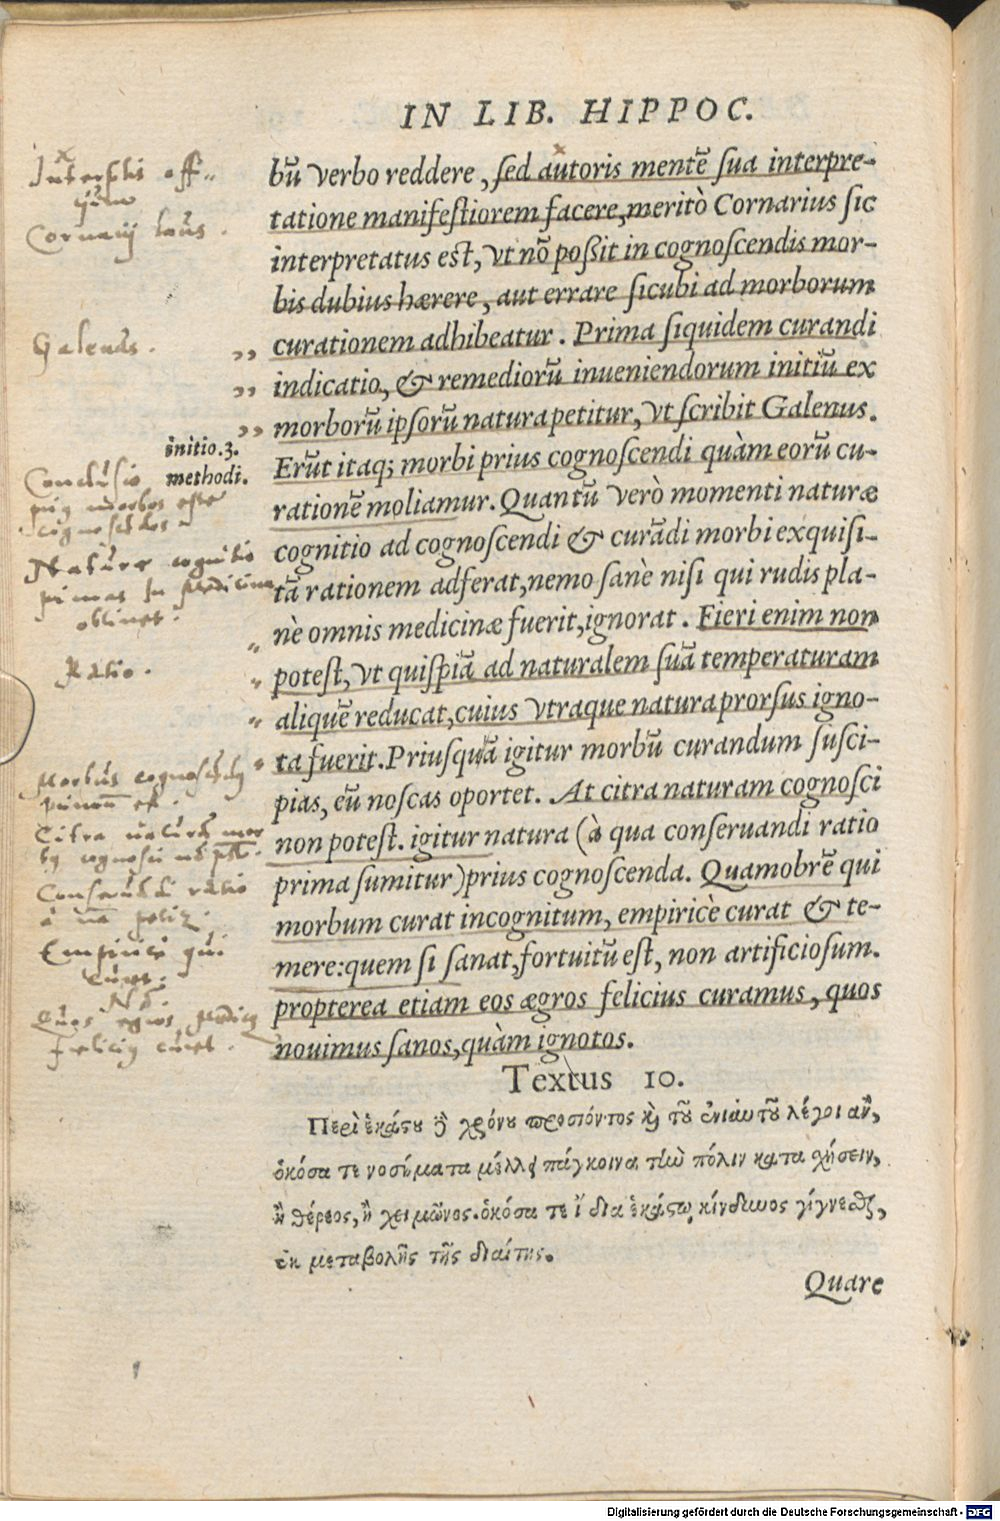 IN LIB. HIPPOC.
bũ verbo reddere, sed autoris mentẽ sua interpre-
tatione manifestiorem facere, meritò Cornarius sic
interpretatus est, vt nõ possit in cognoscendis mor-
bis dubius hærere, aut errare sicubi ad morborum
curationem adhibeatur. Prima siquidem curandi
indicatio, & remediorũ inueniendorum initiũ ex
morborũ ipsorũ natura petitur, vt scribit Galenus.
Erũt itaq; morbi prius cognoscendi quàm eorũ cu-
rationẽ moliamur. Quantũ verò momenti naturæ
cognitio ad cognoscendi & curãdi morbi exquisi-
tã rationem adferat, nemo sanè nisi qui rudis pla-
nè omnis medicinæ fuerit, ignorat. Fieri enim non
potest, vt quispiã ad naturalem suã temperaturam
aliquẽ reducat, cuius vtraque natura prorsus igno-
ta fuerit. Priusquã igitur morbũ curandum susci-
pias, eũ noscas oportet. At citra naturam cognosci
non potest. igitur natura (à qua conseruandi ratio
prima sumitur) prius cognoscenda. Quamobrẽ qui
morbum curat incognitum, empiricè curat & te-
mere: quem si sanat, fortuitũ est, non artificiosum.
propterea etiam eos ægros felicius curamus, quos
nouimus sanos, quàm ignotos.
Textus 10.
Περὶ ἑκάστου δὲ χρόνου προσιόντος καὶ τοῦ ἐνιαυτοῦ λέγοι ἂν,
ὁκόσα τε νοσήματα μέλλει πάγκοινα τὴν πόλιν κατασχήσειν,
ἢ θέρεος, ἢ χειμῶνος. ὁκόσα τε ἴδια ἑκάστῳ κίνδυνος γίγνεσθαι,
ἐκ μεταβολῆς τῆς διαίτης.
Quare
initio.3.
methodi.
Cornarij laus.
Galenus.
Conclusio
Naturæ cognitio
primas in Medicina
obtinet.
Ratio.
Citra naturã mor
Conseruãdi ratio
Empirice qui
curet.
Digitalisierung gefördert durch die Deutsche Forschungsgemeinschaft - DFG